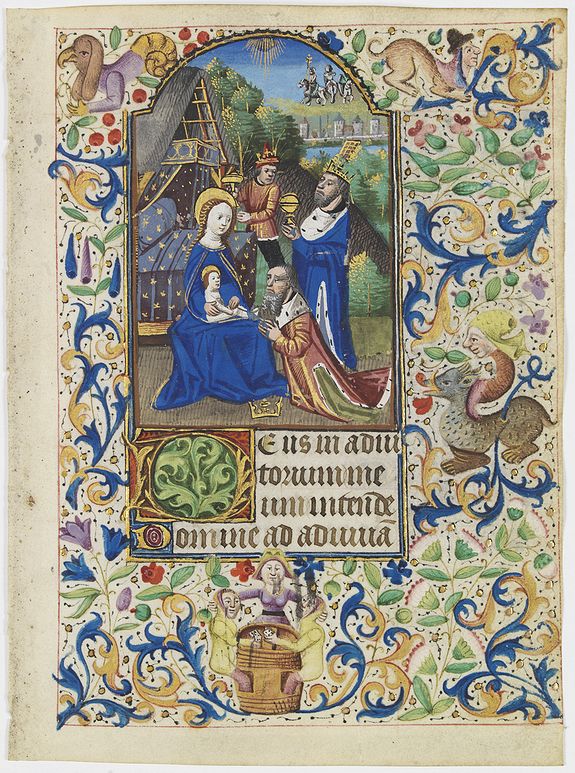 Deus in adiu
torium me
um intende
Domine ad adiuuā